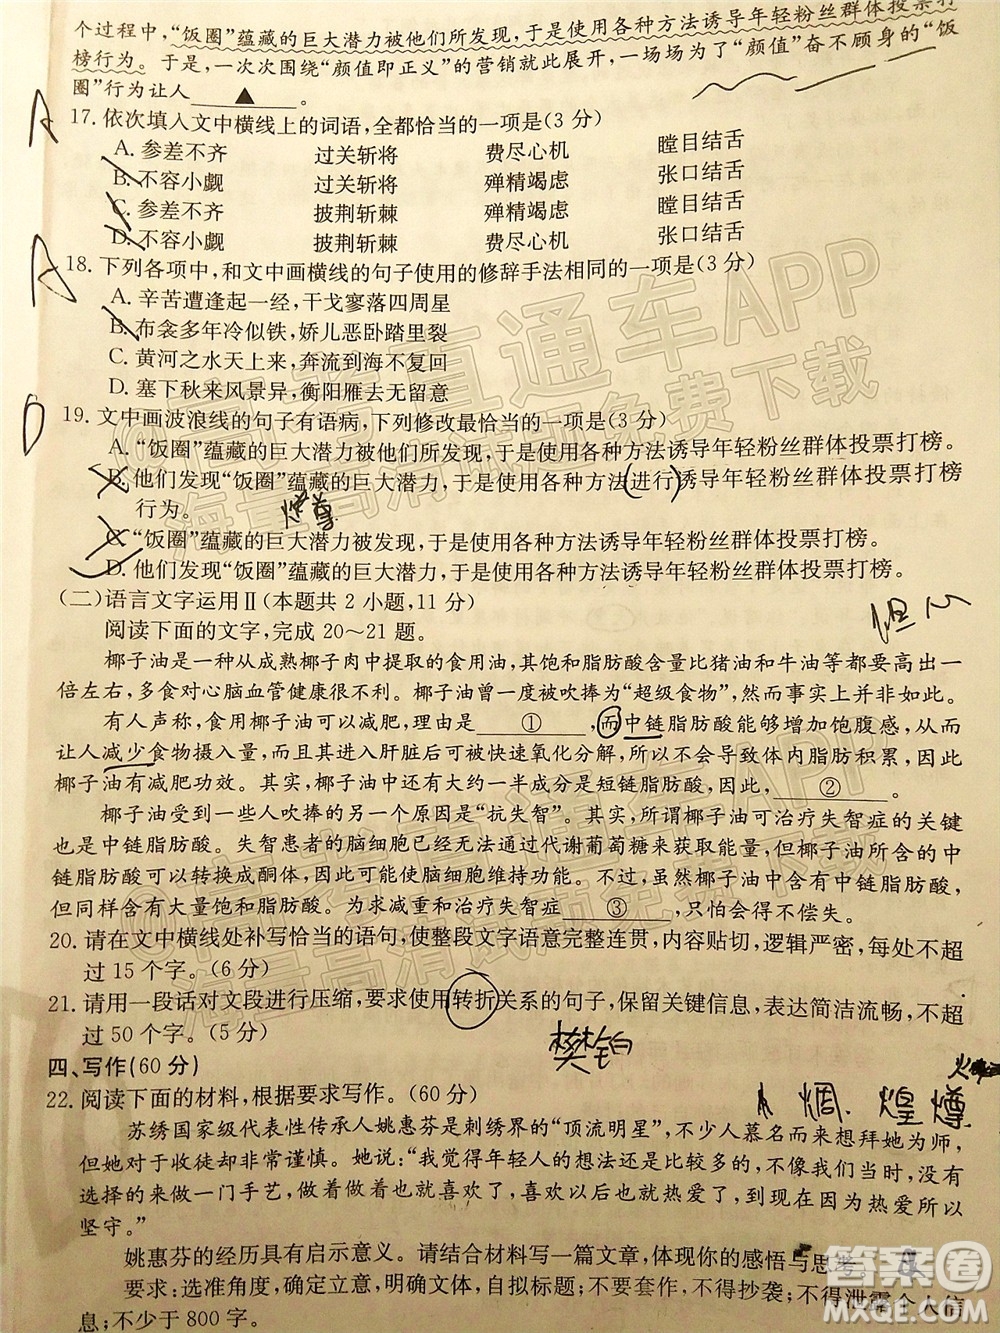 个过程中，“饭圈”蕴藏的巨大潜力被他们所发现，于是使用各种方法诱导年轻粉丝群体投票打
榜行为。于是，一次次围绕“颜值即正义”的营销就此展开，一场场为了“颜值”奋不顾身的“饭
圈”行为让人____▲____。
17. 依次填入文中横线上的词语，全都恰当的一项是(3 分)
A. 参差不齐 过关斩将 费尽心机 瞠目结舌
B. 不容小觑 过关斩将 殚精竭虑 张口结舌
C. 参差不齐 披荆斩棘 殚精竭虑 瞠目结舌
D. 不容小觑 披荆斩棘 费尽心机 张口结舌
18. 下列各项中，和文中画横线的句子使用的修辞手法相同的一项是(3 分)
A. 辛苦遭逢起一经，干戈寥落四周星
B. 布衾多年冷似铁，娇儿恶卧踏里裂
C. 黄河之水天上来，奔流到海不复回
D. 塞下秋来风景异，衡阳雁去无留意
19. 文中画波浪线的句子有语病，下列修改最恰当的一项是(3 分)
A. “饭圈”蕴藏的巨大潜力被他们所发现，于是使用各种方法诱导年轻粉丝群体投票打榜。
B. 他们发现“饭圈”蕴藏的巨大潜力，于是使用各种方法进行诱导年轻粉丝群体投票打榜
行为。
C. “饭圈”蕴藏的巨大潜力被发现，于是使用各种方法诱导年轻粉丝群体投票打榜。
D. 他们发现“饭圈”蕴藏的巨大潜力，于是使用各种方法诱导年轻粉丝群体投票打榜。
(二)语言文字运用Ⅱ(本题共 2 小题，11 分)
阅读下面的文字，完成 20～21 题。
椰子油是一种从成熟椰子肉中提取的食用油，其饱和脂肪酸含量比猪油和牛油等都要高出一
倍左右，多食对心脑血管健康很不利。椰子油曾一度被吹捧为“超级食物”，然而事实上并非如此。
有人声称，食用椰子油可以减肥，理由是____①____，而中链脂肪酸能够增加饱腹感，从而
让人减少食物摄入量；而且其进入肝脏后可被快速氧化分解，所以不会导致体内脂肪积累，因此
椰子油有减肥功效。其实，椰子油中还有大约一半成分是短链脂肪酸，因此，____②____。
椰子油受到一些人吹捧的另一个原因是“抗失智”。声称椰子油可治疗失智症的关键
也是中链脂肪酸。失智症患者的脑细胞已经无法通过代谢葡萄糖来获取能量，而椰子油所含的中
链脂肪酸可以转换成酮体，因此能使脑细胞维持功能。不过，虽然椰子油中含有中链脂肪酸，
但也同样含有大量饱和脂肪酸。为求减重和治疗失智症____③____，只怕会得不偿失。
20. 请在文中横线处补写恰当的语句，使整段文字语意完整连贯，内容贴切，逻辑严密，每处不超
过 15 个字。(6 分)
21. 请用一段话对文段进行压缩，要求使用转折关系的句子，保留关键信息，表达简洁流畅，不超
过 50 个字。(5 分)
四、写作(60 分)
22. 阅读下面的材料，根据要求写作。(60 分)
苏绣国家级代表性传承人姚惠芬是刺绣界的“顶流明星”，不少人慕名而来想拜她为师，
但她对于收徒却非常谨慎。她说：“我觉得年轻人的想法还是比较多的，不像我们当时，没有
选择的来做一门手艺，做着做着也就喜欢了，喜欢了也就热爱了，到现在因为热爱所以
坚守。”
姚惠芬的经历具有启示意义。请结合材料写一篇文章，体现你的感悟与思考。
要求：选准角度，确定立意，明确文体，自拟标题；不要套作，不得抄袭；不得泄露个人信
息；不少于 800 字。